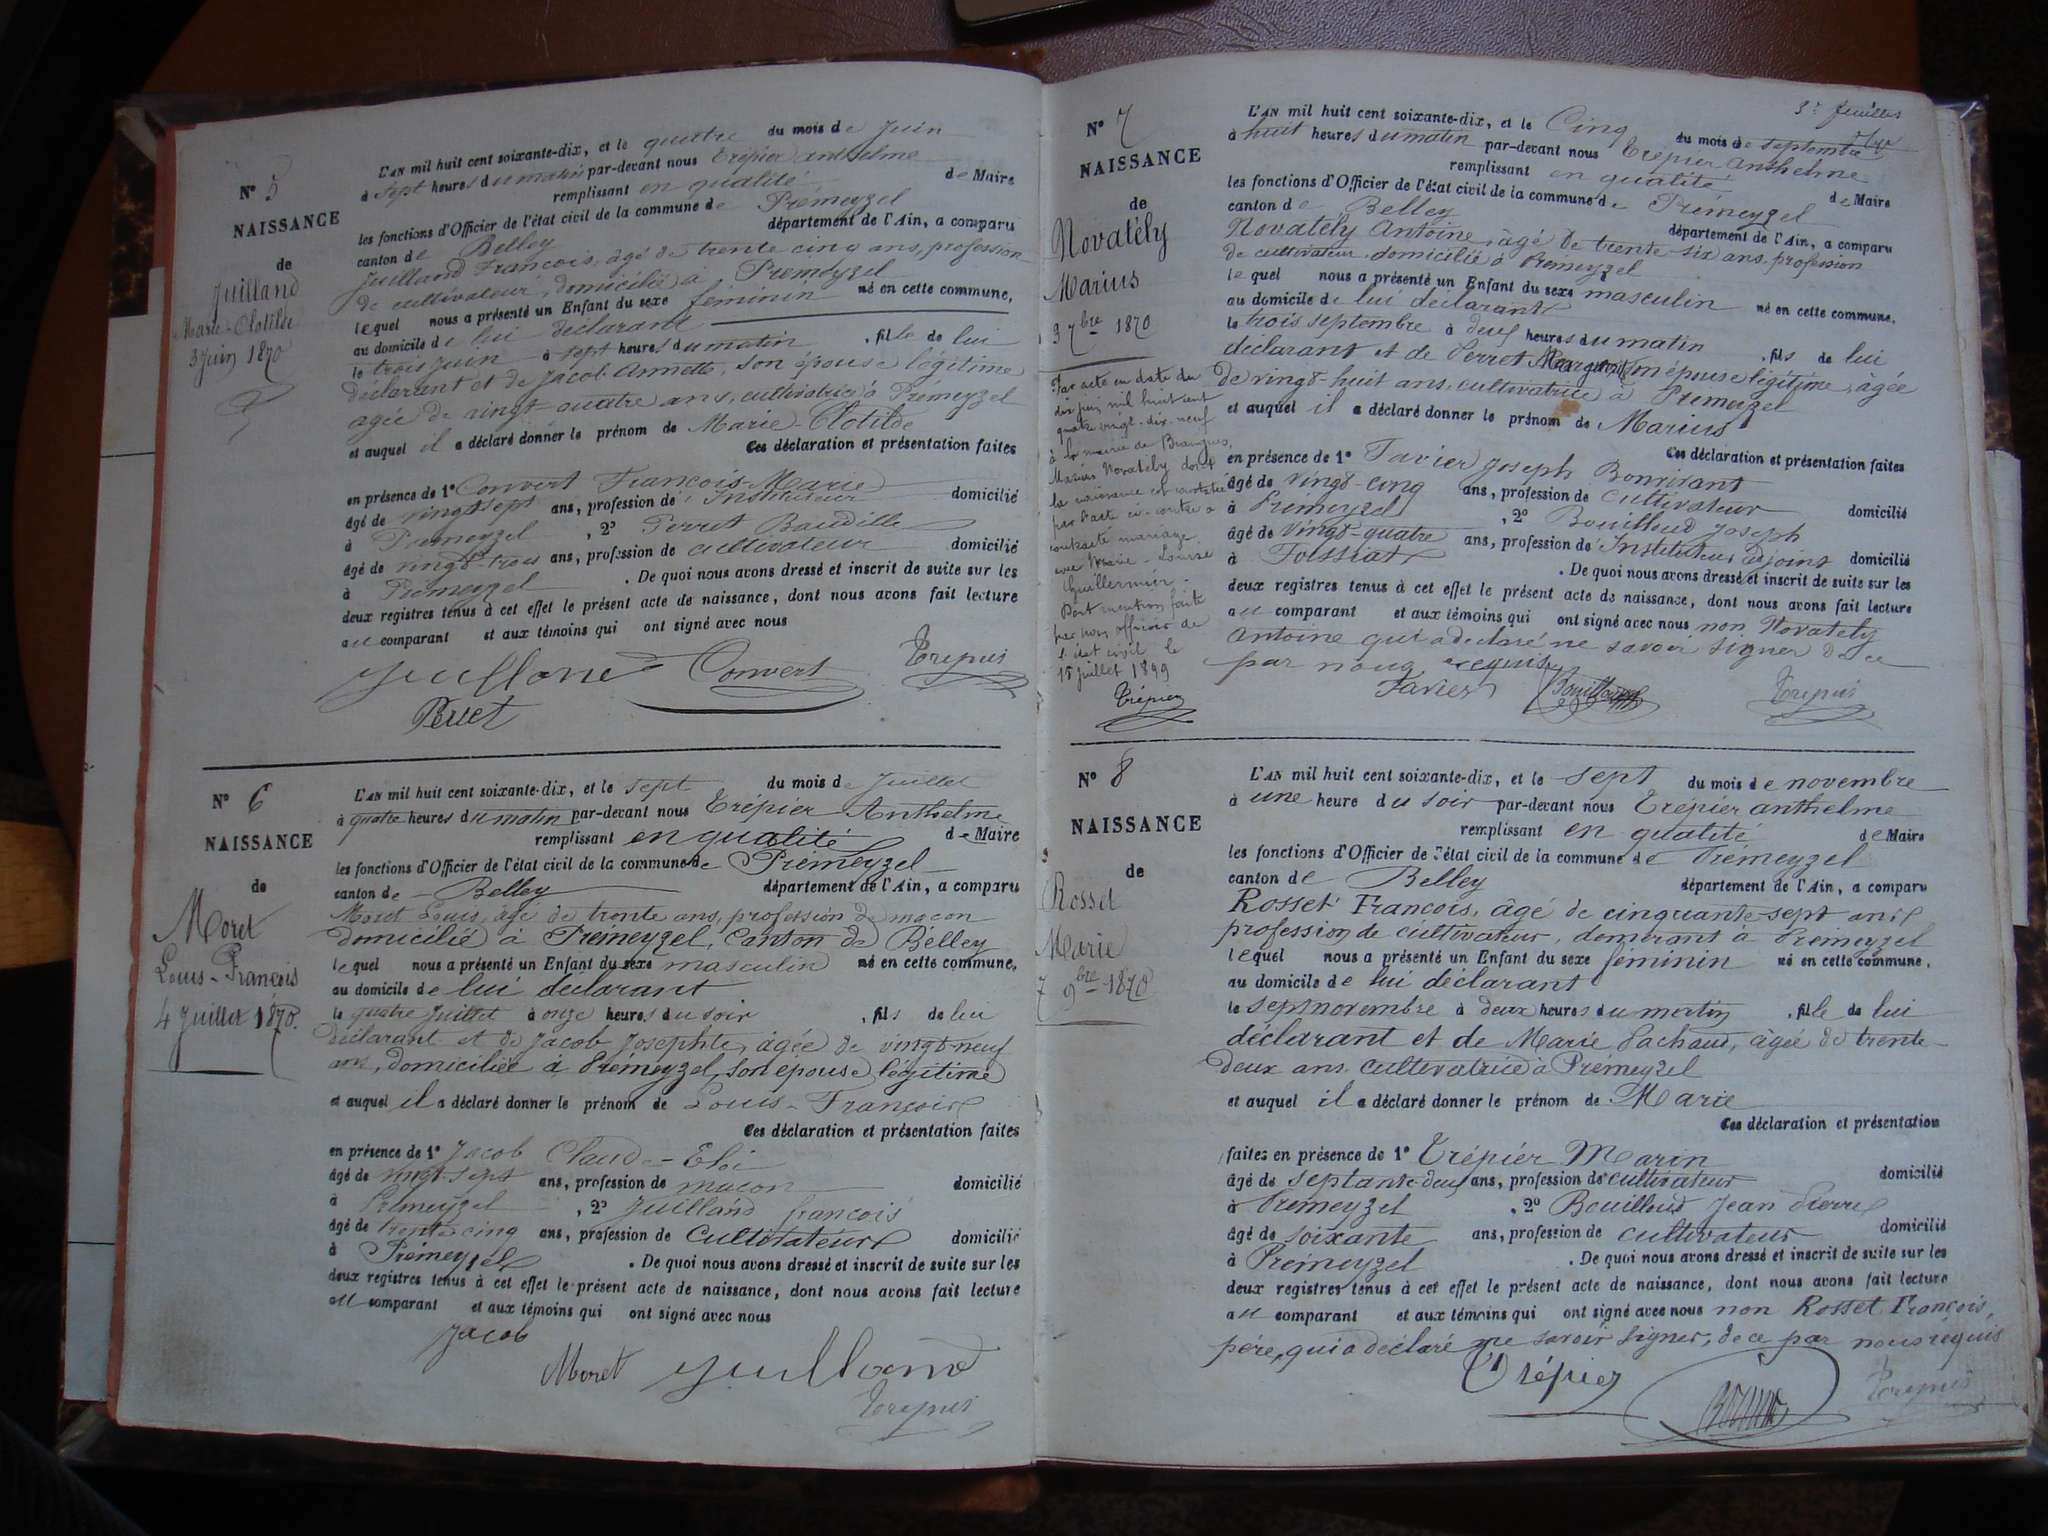 N° 5
NAISSANCE
de
Juilland
Marie-Clotilde
3 Juin 1870
L'AN mil huit cent soixante-dix, et le quatre du mois de Juin
à sept heures du matin par-devant nous Trépier anthelme
remplissant en qualité de Maire
les fonctions d'Officier de l'état civil de la commune de Prémeyzel
canton de Belley département de l'Ain, a comparu
Juilland François, âgé de trente cinq ans, profession
de cultivateur, domicilié à Prémeyzel
lequel nous a présenté un Enfant du sexe féminin né en cette commune,
au domicile de lui déclarant
le trois Juin à sept heures du matin, fille de lui
déclarant et de Jacob Annette, son épouse légitime
agée de vingt-quatre ans, cultivatrice à Prémeyzel
et auquel il a déclaré donner le prénom de Marie-Clotilde
Ces déclaration et présentation faites
en présence de 1° Convert François-Marie
âgé de vingt sept ans, profession de Instituteur domicilié
à Prémeyzel, 2° Perret Baudille
âgé de vingt-trois ans, profession de cultivateur domicilié
à Prémeyzel. De quoi nous avons dressé et inscrit de suite sur les
deux registres tenus à cet effet le présent acte de naissance, dont nous avons fait lecture
au comparant et aux témoins qui ont signé avec nous
Juilland Convert Trepier
Perret
N° 6
NAISSANCE
de
Moret
Louis-François
4 Juillet 1870.
L'AN mil huit cent soixante-dix, et le sept du mois de Juillet
à quatre heures du matin par-devant nous Trépier Anthelme
remplissant en qualité de Maire
les fonctions d'Officier de l'état civil de la commune de Prémeyzel
canton de Belley département de l'Ain, a comparu
Moret Louis, âgé de trente ans, profession de maçon
domicilié à Prémeyzel, Canton de Belley
lequel nous a présenté un Enfant du sexe masculin né en cette commune,
au domicile de lui déclarant
le quatre Juillet à onze heures du soir, fils de lui
déclarant et de Jacob Josephte, âgée de vingt-neuf
ans, domiciliée à Prémeyzel, son épouse légitime
et auquel il a déclaré donner le prénom de Louis-François
Ces déclaration et présentation faites
en présence de 1° Jacob Claude-Eloi
âgé de vingt-sept ans, profession de maçon domicilié
à Prémeyzel, 2° Juilland françois
âgé de trente cinq ans, profession de Cultivateur domicilié
à Prémeyzel. De quoi nous avons dressé et inscrit de suite sur les
deux registres tenus à cet effet le présent acte de naissance, dont nous avons fait lecture
au comparant et aux témoins qui ont signé avec nous
Jacob
Moret Juilland
Trepier
3e feuillet
N° 7
NAISSANCE
de
Novatély
Marius
3 7bre 1870
Par acte en date du
dix juin mil huit cent
quatre vingt-dix-neuf
à la mairie de Brangues,
Marius Novatély dont
la naissance est constatée
par l'acte ci-contre a
contracté mariage
avec Marie-Louise
Guillermier.
Dont mention faite
par nous officier de
l'état civil le
15 juillet 1899
Trépier
L'AN mil huit cent soixante-dix, et le Cinq du mois de septembre
à huit heures du matin par-devant nous Trépier Anthelme
remplissant en qualité de Maire
les fonctions d'Officier de l'état civil de la commune de Prémeyzel
canton de Belley département de l'Ain, a comparu
Novatély Antoine, âgé de trente-six ans, profession
de cultivateur, domicilié à Prémeyzel
lequel nous a présenté un Enfant du sexe masculin né en cette commune,
au domicile de lui déclarant
le trois septembre à deux heures du matin, fils de lui
déclarant et de Perret Marguerite son épouse légitime, âgée
de vingt-huit ans, cultivatrice à Prémeyzel
et auquel il a déclaré donner le prénom de Marius
Ces déclaration et présentation faites
en présence de 1° Tavier Joseph
âgé de vingt-cinq ans, profession de cultivateur domicilié
à Prémeyzel, 2° Bouilloud Joseph
âgé de vingt-quatre ans, profession de Instituteur Adjoint domicilié
à Foissiat. De quoi nous avons dressé et inscrit de suite sur les
deux registres tenus à cet effet le présent acte de naissance, dont nous avons fait lecture
au comparant et aux témoins qui ont signé avec nous non Novately
Antoine qui a déclaré ne savoir signer de ce
par nous requis
Tavier Bouilloud Trepier
N° 8
NAISSANCE
de
Rosset
Marie
7 9bre 1870
L'AN mil huit cent soixante-dix, et le sept du mois de novembre
à une heure du soir par-devant nous Trépier anthelme
remplissant en qualité de Maire
les fonctions d'Officier de l'état civil de la commune de Prémeyzel
canton de Belley département de l'Ain, a comparu
Rosset François, âgé de cinquante-sept ans
profession de cultivateur, demeurant à Prémeyzel
lequel nous a présenté un Enfant du sexe féminin né en cette commune,
au domicile de lui déclarant
le sept novembre à deux heures du matin, fille de lui
déclarant et de Marie Pachaud, âgée de trente-
deux ans, cultivatrice à Prémeyzel
et auquel il a déclaré donner le prénom de Marie
Ces déclaration et présentation
faites en présence de 1° Trépier Marin
âgé de septante-deux ans, profession de cultivateur domicilié
à Prémeyzel, 2° Bouilloud Jean Pierre
âgé de soixante ans, profession de cultivateur domicilié
à Prémeyzel. De quoi nous avons dressé et inscrit de suite sur les
deux registres tenus à cet effet le présent acte de naissance, dont nous avons fait lecture
au comparant et aux témoins qui ont signé avec nous non Rosset François,
père, qui a déclaré ne savoir signer, de ce par nous requis
Trépier Trepier